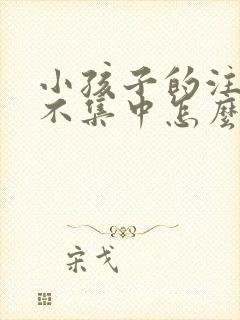 小孩子的注
不集中怎麼
宋戈